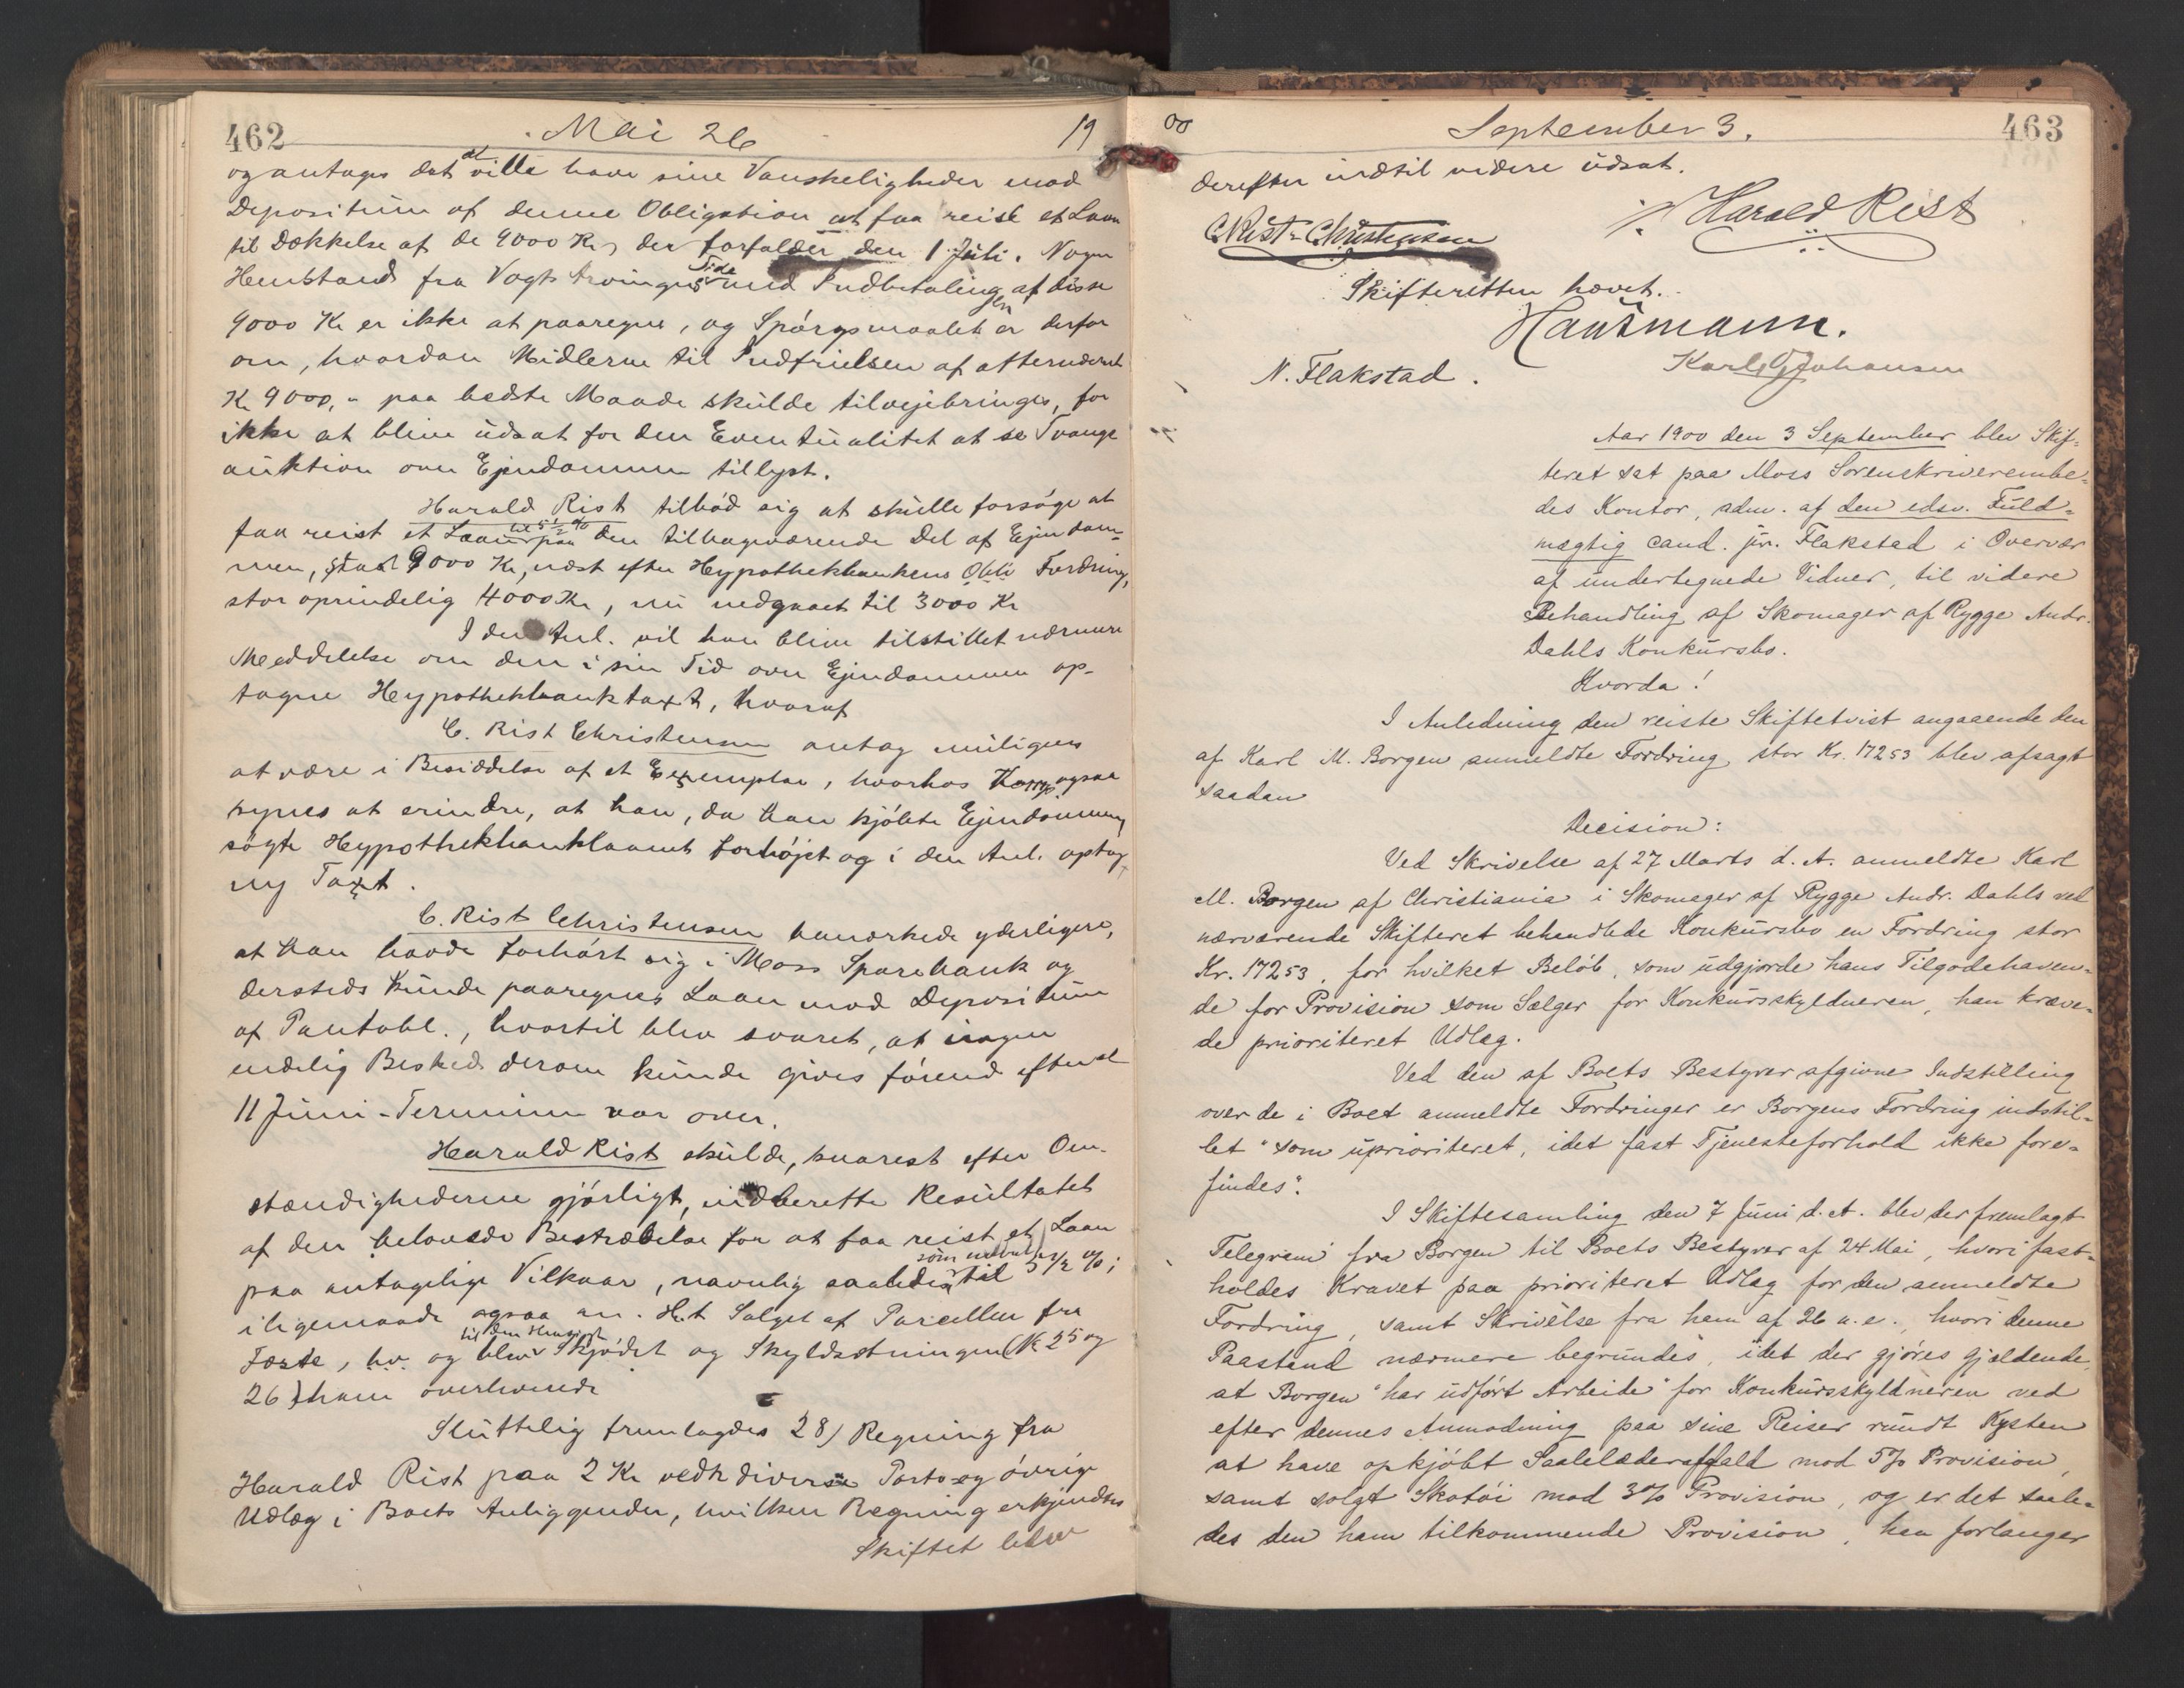 462
Mai 26
19
og antages det at ville have sine Vanskeligheder mod
Depositum af denne Obligation at faa reist et Laan
til Dækkelse af de 9000 Kr, der forfalder den 1 Juli. Nogen
Henstand fra Vogts Arvingers Side med Indbetalingen af disse
9000 Kr er ikke at paaregne, og Spørgsmaalet er derfor
om, hvordan Midlerne til Indfrielsen af
Kr 9000,- paa bedste Maade skulde tilvejebringes, for
ikke at blive udsat for den Eventualitet at se Tvangs
auktion over Ejendommen tillyst.
Harald Rist tilbød sig at skulle forsøge at
faa reist et Laan til 5 1/2 % paa den tilbageværende Del af Ejendom-
men, stort 9000 Kr, næst efter Hypothekbankens Obli Fordring,
stor oprindelig 4000 Kr, nu nedgaaet til 3000 Kr
I den Anl. vil han blive tilstillet nærmere
Meddelelse om den i sin Tid over Ejendommen op-
tagne Hypothekbanktaxt, hvoraf
C. Rist Christensen antog muligens
at være i Besiddelse af et Exemplar, hvorhos ogsaa
synes at erindre, at han, da han kjøbte Ejendommen
søgte Hypothekbanklaanet forhøjet og i den Anl. optog
ny Taxt.
C. Rist Christensen bemærkede yderligere,
at han havde forhørt sig i Moss Sparebank og
dersteds kunde paaregnes Laan mod Depositum
af Pantobl., hvortil blev svaret, at ingen
endelig Besked derom kunde gives førend efter at
11 Juni-Terminen var over.
Harald Rist skulde, snarest efter Om-
stændighederne gjørligt, indberette Resultatet
af den belovede Bestræbelse for at faa reist et Laan
paa antagelige Vilkaar, navnlig saaledes som nævnt til 5 1/2 %;
iligemaade ogsaa an. Ht Salget af Parcellen fra
Første, hv. og blev til den Hensigt Skjødet og Skyldsætningen (No 25 og
26) ham overleveret
Sluttelig fremlagdes 28) Regning fra
Harald Rist paa 2 Kr vedk diverse Porto og øvrige
Udlæg i Boets Anliggender, hvilken Regning erkjendtes
Skiftet blev
00
September 3.
463
derefter indtil videre udsat.
Harald Rist
C Rist-Christensen
Skifteretten hævet.
Hausmann.
N. Flakstad.
Karl Johansen
Aar 1900 den 3 September blev Skif-
teret sat paa Moss Sorenskriverembe-
des Kontor, adm. af den edsv. Fuld-
mægtig cand. jur. Flakstad i Overvær
af undertegnede Vidner, til videre
Behandling af Skomager af Rygge Andr.
Dahls Konkursbo.
Hvorda!
I Anledning den reiste Skiftetvist angaaende den
af Karl M. Borgen anmeldte Fordring stor Kr. 172 53 blev afsagt
saadan
Decision:
Ved Skrivelse af 27 Marts d. A. anmeldte Karl
M. Borgen af Christiania i Skomager af Rygge Andr. Dahls ved
nærværende Skifteret behandlede Konkursbo en Fordring stor
Kr. 172 53, for hvilket Beløb, som udgjorde hans Tilgodehaven-
de for Provision som Sælger for Konkursskyldneren, han kræve-
de prioriteret Udlæg.
Ved den af Boets Bestyrer afgivne Indstilling
over de i Boet anmeldte Fordringer er Borgens Fordring indstil-
let "som uprioriteret, idet fast Tjenesteforhold ikke fore-
findes".
I Skiftesamling den 7 Juni d. A. blev der fremlagt
Telegram fra Borgen til Boets Bestyrer af 24 Mai, hvori fast-
holdes Kravet paa prioriteret Udlæg for den anmeldte
Fordring, samt Skrivelse fra ham af 26 s. e., hvori denne
Paastand nærmere begrundes, idet der gjøres gjældende,
at Borgen "har udført Arbeide" for Konkursskyldneren ved
efter dennes Anmodning paa sine Reiser rundt Kysten
at have opkjøbt Saalelæderaffald mod 5% Provision,
samt solgt Skotøi mod 3% Provision, og er det saale-
des den ham tilkommende Provision, han forlanger